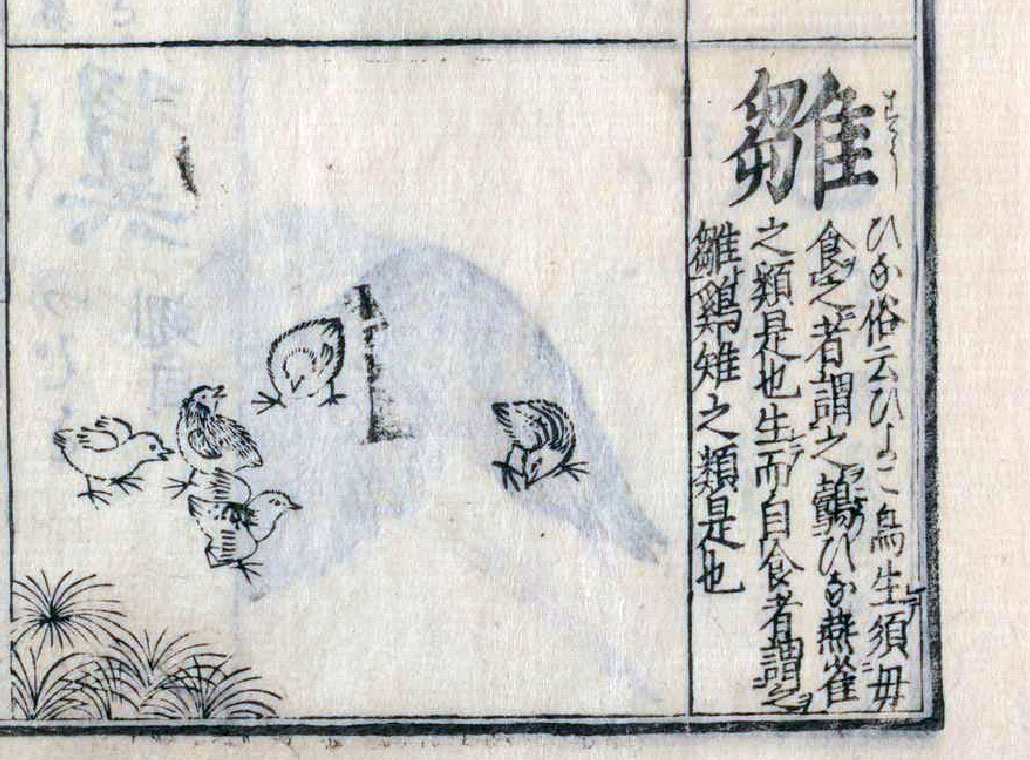 雛
ひな俗云ひよこ鳥生須毋
食之者謂之鷇ひな燕雀
之類是也生而自食者謂之
雛鷄雉之類是也